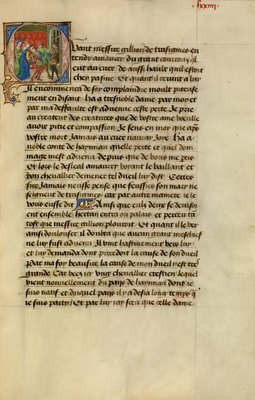 Quant messire gillion de trasignies en
tendy amaury du grant courcoy ql
eut au cuer de aussi hault quil estoit
chey pasme Et quant il revint a luy
Il encommenca de soy complaindre moult piteuse
ment en disant ha a tresnoble dame par moy et
par ma deffaulte est advenue ceste perte Je pry
au createur des creatures que de vostre ame voeulle
avoir pitie et compassion Je sens en moy que aps
vostre mort Jamais au cuer nauray Joye ha a
noble conte de haynnau quelle perte et quel dom
mage mest advenu depuis que de vous me party
Et lors le desleal amaury voiant le vaillant et
bon chevallier demener tel dueil luy dist Certes
sire Jamais neusse pense que feussies son mary ne
seigneur de trasignies car par autre maniere le
vous eusse dit Ainsi que eulz deux se devisoi
ent ensemble hertan entra ou palais et percut tan
tost que messire gillion plouroit Et quant il le vey
ainsi doulouser il doubta que aucun grant meschief
ne luy fust advenu Il vint hastivement vers luy
et luy demanda dont procedoit la cause de son dueil
Par ma foy beau sire la cause de mon dueil est tres
grande Car veez cy ung chevallier crestien lequel
vient nouvellement du pays de haynnau dont je
suis natif et duquel pays il y a desia long temps que
je suis party Et par luy ay sceu que celle dame